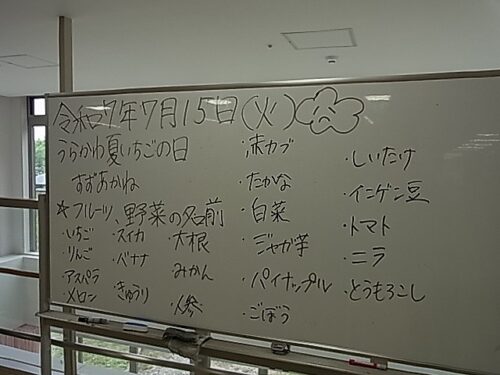 令和7年7月15日(火) な
うらかわ夏いちごの日
すずあかね
☆フルーツ、野菜の名前
・いちご
・りんご
・アスパラ
・メロン
・スイカ
・バナナ
・きゅうり
・大根
・みかん
・人参
・赤カブ
・たかな
・白菜
・ジャガ芋
・パイナップル
・ごぼう
・しいたけ
・インゲン豆
・トマト
・ニラ
・とうもろこし